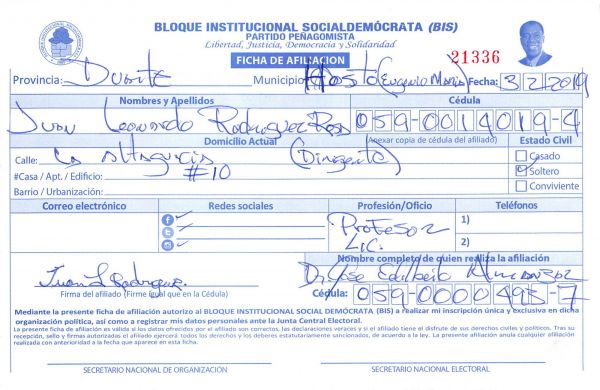 BLOQUE INSTITUCIONAL SOCIALDEMÓCRATA (BIS)
PARTIDO PEÑAGOMISTA
Libertad, Justicia, Democracia y Solidaridad
FICHA DE AFILIACIÓN
21336
Provincia: Duarte Municipio: Hosto (Eugenio María) Fecha: 3/2/2019
Nombres y Apellidos Cédula
Juan Leonardo Rodriguez Rosa 059-0014019-4
Domicilio Actual (Anexar copia de cédula del afiliado) Estado Civil
Calle: La Altagracia (Dirigente) Casado
#Casa / Apt. / Edificio: #10 Soltero
Barrio / Urbanización: Conviviente
Correo electrónico Redes sociales Profesión/Oficio Teléfonos
Profesor 1)
Lic. 2)
Nombre completo de quien realiza la afiliación
Juan L Rodriguez Dr. Jose Edilberto
Firma del afiliado (Firme igual que en la Cédula) Cédula: 059-0000495-7
Mediante la presente ficha de afiliación autorizo al BLOQUE INSTITUCIONAL SOCIAL DEMÓCRATA (BIS) a realizar mi inscripción única y exclusiva en dicha
organización política, así como a registrar mis datos personales ante la Junta Central Electoral.
La presente ficha de afiliación es válida si los datos ofrecidos por el afiliado son correctos, las declaraciones veraces y si el afiliado tiene el disfrute de sus derechos civiles y políticos. Tras su
recepción, sello y firmas autorizadas el afiliado ejercerá todos los derechos y los deberes estatutariamente sancionados, de acuerdo a la ley. La presente afiliación anula cualquier afiliación
realizada con anterioridad a la fecha que aparece en esta ficha.
SECRETARIO NACIONAL DE ORGANIZACIÓN SECRETARIO NACIONAL ELECTORAL